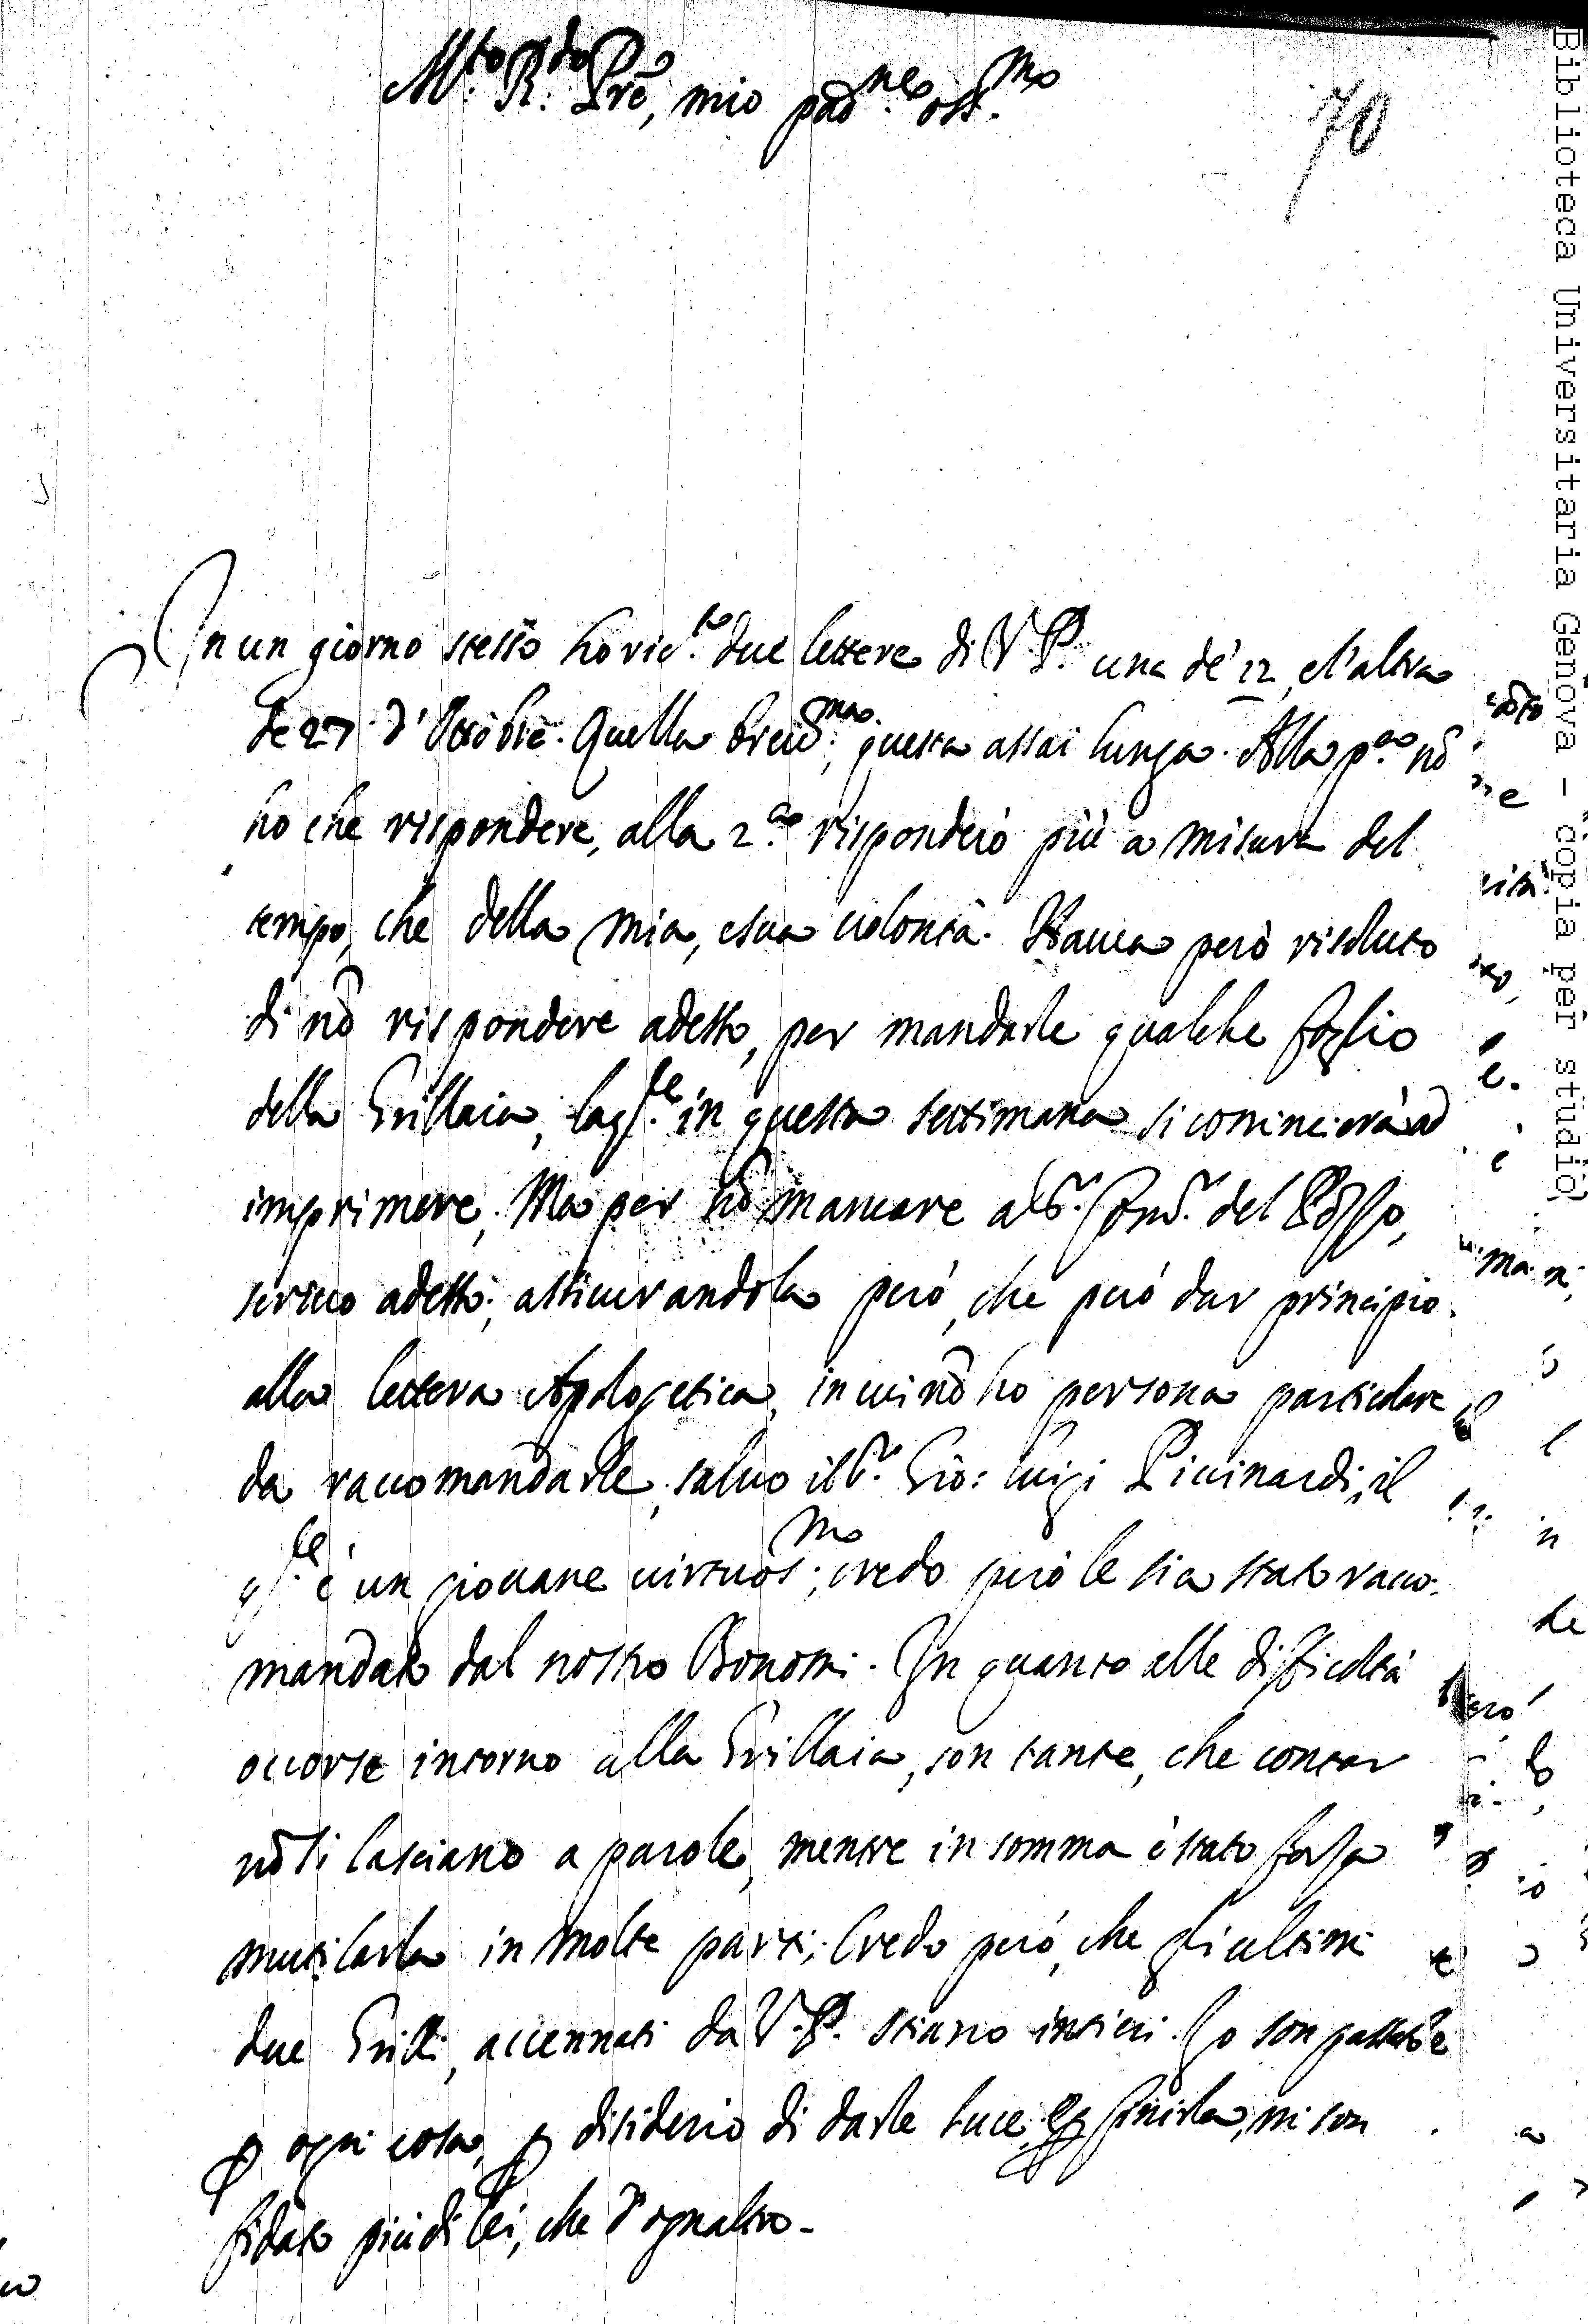 M.to R.do Prē, mio pad.ne oss.mo
70
In un giorno stesso ho ric.to due lettere di V.P. una de' 12, e l'altra
de 27 d'Ottobre. Quella breuis.ma; questa assai lunga. Alla p.a nō
ho che rispondere, alla 2.a risponderò più a misura del
tempo, che della mia, e sua uolontà. Haueа però risoluto
di nō rispondere adesso, per mandarle qualche foglio
della Grillaia, la q.le in questa settimana si comincierà ad
imprimere. Ma per nō mancare al S.r del Pozzo,
scriuo adesso; assicurandola però, che però dar principio
alla lettera Apologetica, in cui nō ho persona particolare
da raccomandarle, saluo il S.r Gio: Luigi Piccinardi, il
q.le è un giouane uirtuos.mo; credo però le sia stato racco-
mandato dal nostro Bonomi. In quanto alle difficoltà
occorse intorno alla Grillaia, son tante, che contar
nō si lasciano a parole, mentre in somma è stato forza
mutilarla in molte parti; Credo però, che gli ultimi
due Grilli, accennati da V.P. stiano intieri. Io son passato
ꝑ ogni cosa, ꝑ disiderio di darle luce, e ꝑ finirla, mi son
fidato più di lei, che d'ogn'altro.
Biblioteca Universitaria Genova - copia per studio